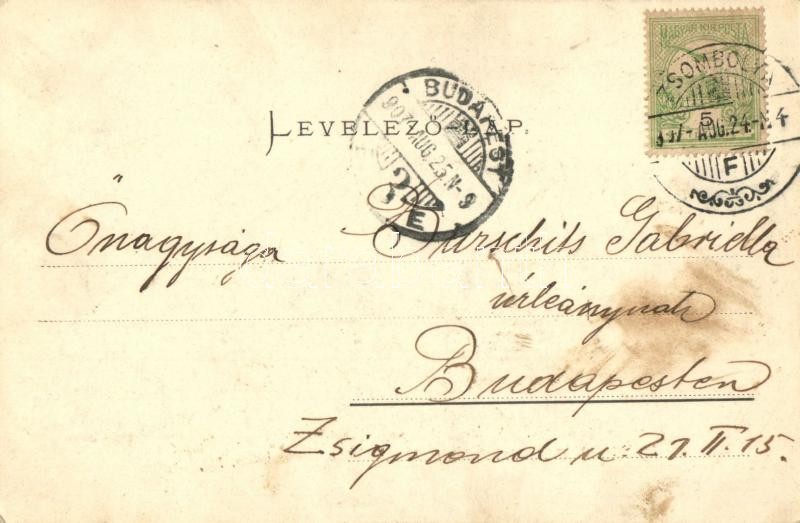 MAGYAR KIR. POSTA
ZSOMBOLYA
5
907 AUG. 24. N4
F
LEVELEZŐ-LAP.
BUDAPEST
907 AUG. 25. N-9
E
Őnagysága Gabriella
úrleánynak
Budapesten
Zsigmond u. 27. II. 15.